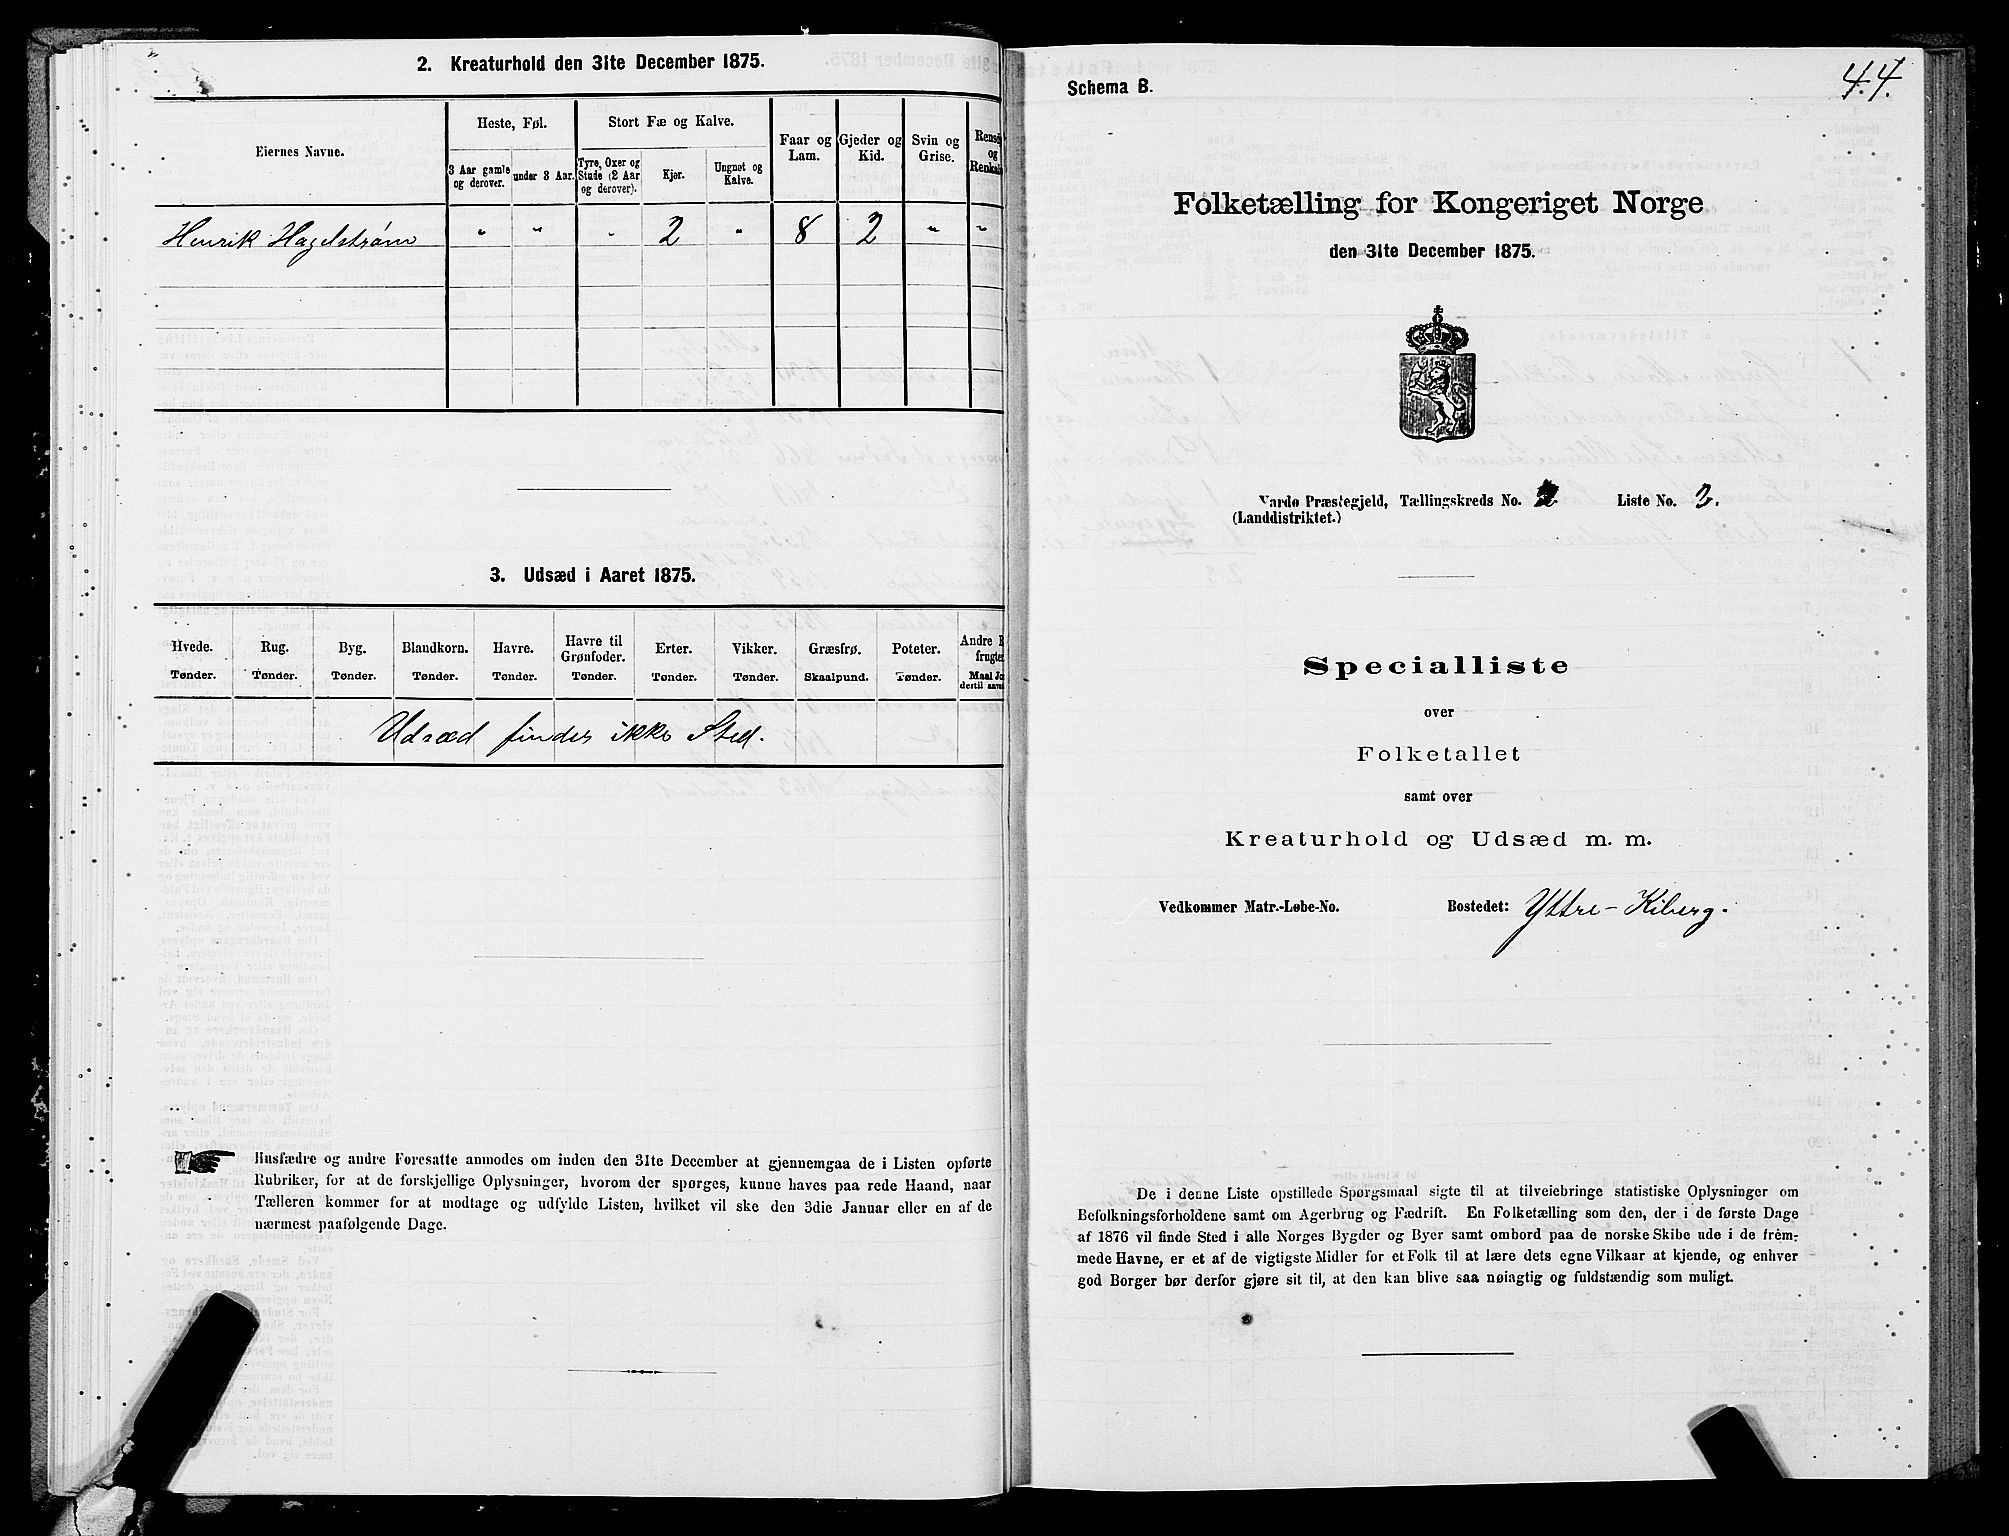 2. Kreaturhold den 31te December 1875.
Eiernes Navne.
Heste, Føl.
Stort Fæ og Kalve.
Faar og Lam.
Gjeder og Kid.
Svin og Grise.
3 Aar gamle og derover.
under 3 Aar.
Tyre, Oxer og Stude (2 Aar og derover).
Kjør.
Ungnøt og Kalve.
Henrik Hagelstrøm " " " 2 " 8 2 " "
3. Udsæd i Aaret 1875.
Hvede. Rug. Byg. Blandkorn. Havre. Havre til Grønfoder. Erter. Vikker. Græsfrø. Poteter. Andre
Tønder. Tønder. Tønder. Tønder. Tønder. Tønder. Tønder. Tønder. Skaalpund. Tønder. Maal
Udsæd findes ikke Sted.
Husfædre og andre Foresatte anmodes om inden den 31te December at gjennemgaa de i Listen opførte
Rubriker, for at de forskjellige Oplysninger, hvorom der spørges, kunne haves paa rede Haand, naar
Tælleren kommer for at modtage og udfylde Listen, hvilket vil ske den 3die Januar eller en af de
nærmest paafølgende Dage.
44.
Schema B.
Folketælling for Kongeriget Norge
den 31te December 1875.
Vardø Præstegjeld, Tællingskreds No. 2 Liste No. 3.
(Landdistriktet.)
Specialliste
over
Folketallet
samt over
Kreaturhold og Udsæd m. m.
Vedkommer Matr.-Løbe-No. Bostedet: Yttre-Kiberg.
De i denne Liste opstillede Spørgsmaal sigte til at tilveiebringe statistiske Oplysninger om
Befolkningsforholdene samt om Agerbrug og Fædrift. En Folketælling som den, der i de første Dage
af 1876 vil finde Sted i alle Norges Bygder og Byer samt ombord paa de norske Skibe ude i de frem-
mede Havne, er et af de vigtigste Midler for et Folk til at lære dets egne Vilkaar at kjende, og enhver
god Borger bør derfor gjøre sit til, at den kan blive saa nøiagtig og fuldstændig som muligt.